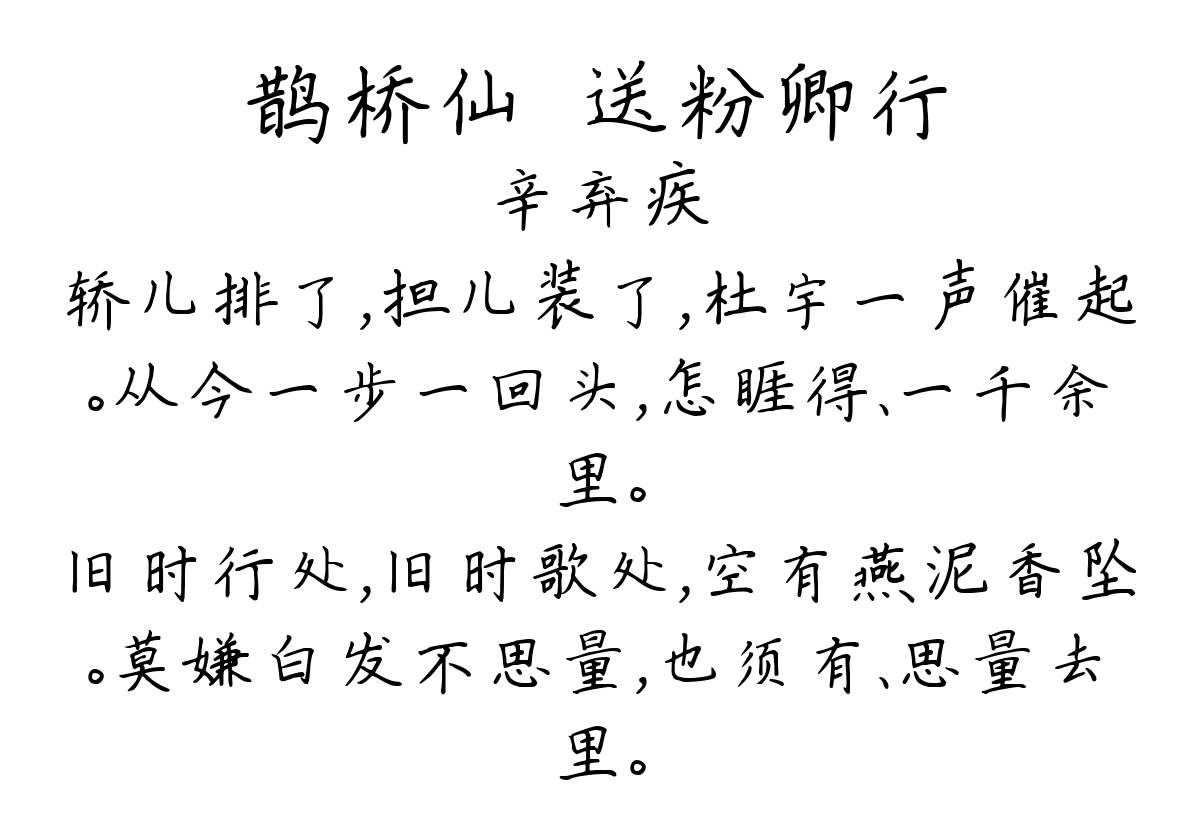 鹊桥仙 送粉卿行
辛弃疾
轿儿排了,担儿装了,杜宇一声催起
。从今一步一回头,怎睚得、一千余
里。
旧时行处,旧时歌处,空有燕泥香坠
。莫嫌白发不思量,也须有、思量去
里。